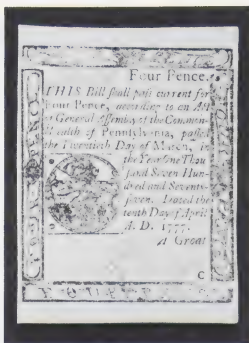 Four Pence.
THIS Bill ſhall paſs current for
Four Pence, according to an Act
of General Aſſembly of the Common-
wealth of Pennſylvania, paſſed
the Twentieth Day of March, in
the Year One Thou
ſand Seven Hun-
dred and Seventy-
ſeven. Dated the
tenth Day of April
A. D. 1777.
A Groat
C